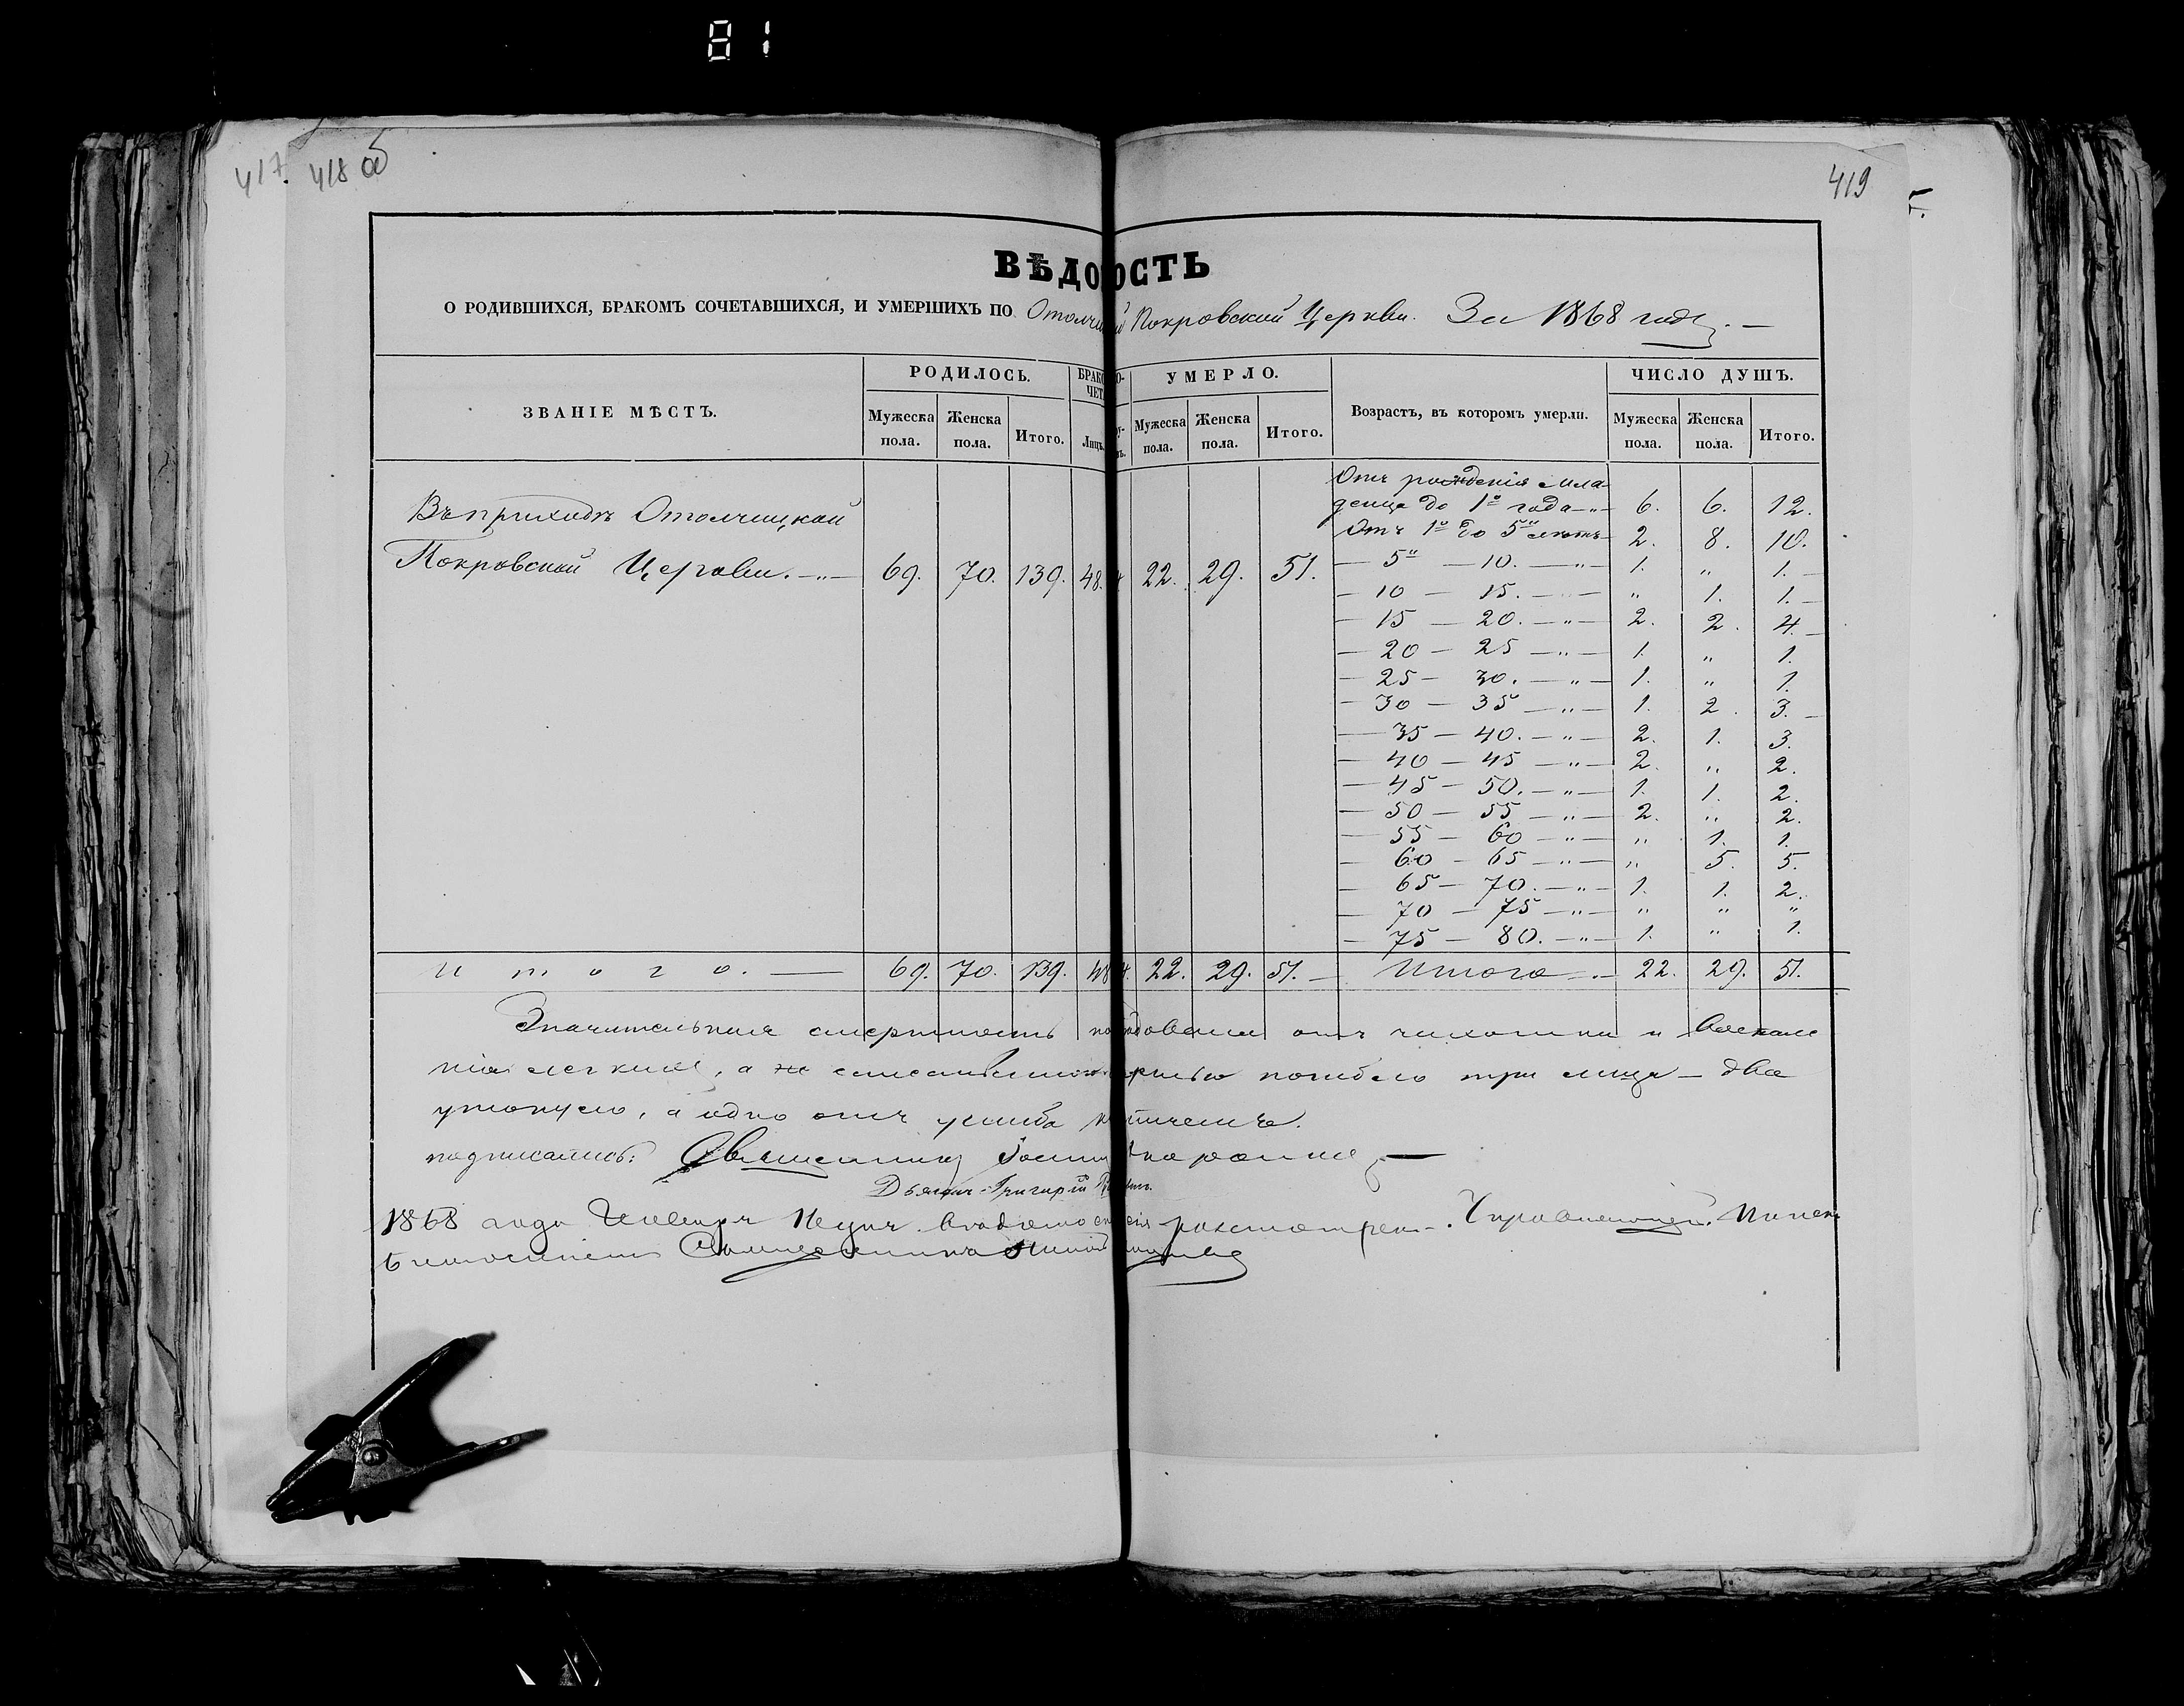 81
417. 418 об
419
ВѢДО ОСТЬ
О РОДИВШИХСЯ, БРАКОМЪ СОЧЕТАВШИХСЯ, И УМЕРШИХЪ ПО Отолчи й Покровской Церкви. За 1868 годъ. —
ЗВАНІЕ МѢСТЪ.
РОДИЛОСЬ.
Мужеска пола.
Женска пола.
Итого.
БРАКО О-
ЧЕТ
Лицъ.
УМЕРЛО.
Мужеска пола.
Женска пола.
Итого.
Возрастъ, въ которомъ умерли.
ЧИСЛО ДУШЪ.
Мужеска пола.
Женска пола.
Итого.
Въ приходѣ Отолчицкой
Покровской Церкви. —"— 69. 70. 139. 48. 22. 29. 51.
Отъ рожденія мла-
денца до 1го года —"— 6. 6. 12.
Отъ 1го до 5" лѣтъ 2. 8. 10.
— 5" — 10. —"— 1. " 1. —
— 10 — 15. —"— " 1. 1. —
— 15 — 20. —"— 2. 2. 4. —
— 20 — 25 —"— 1. " 1.
— 25 — 30. —"— 1. " 1.
— 30 — 35 —"— 1. 2. 3. —
— 35 — 40. —"— 2. 1. 3.
— 40 — 45 —"— 2. " 2.
— 45 — 50. —"— 1. 1. 2.
— 50 — 55 —"— 2. " 2.
— 55 — 60 —"— " 1. 1.
— 60 — 65 —"— " 5. 5.
— 65 — 70. —"— 1. 1. 2.
— 70 — 75 —"— " " "
— 75 — 80. —"— 1. " 1.
Итого. — 69. 70. 139. 48 22. 29. 51. — Итого. — 22. 29. 51.
Значительная смертность отъ чахотки и воспале
нія легкихъ, а погибло три лица — два
утонуло, а одно отъ ушиба
подписались: Священникъ
Дьячекъ Григорій
1868 года разсмотрен. Пинск